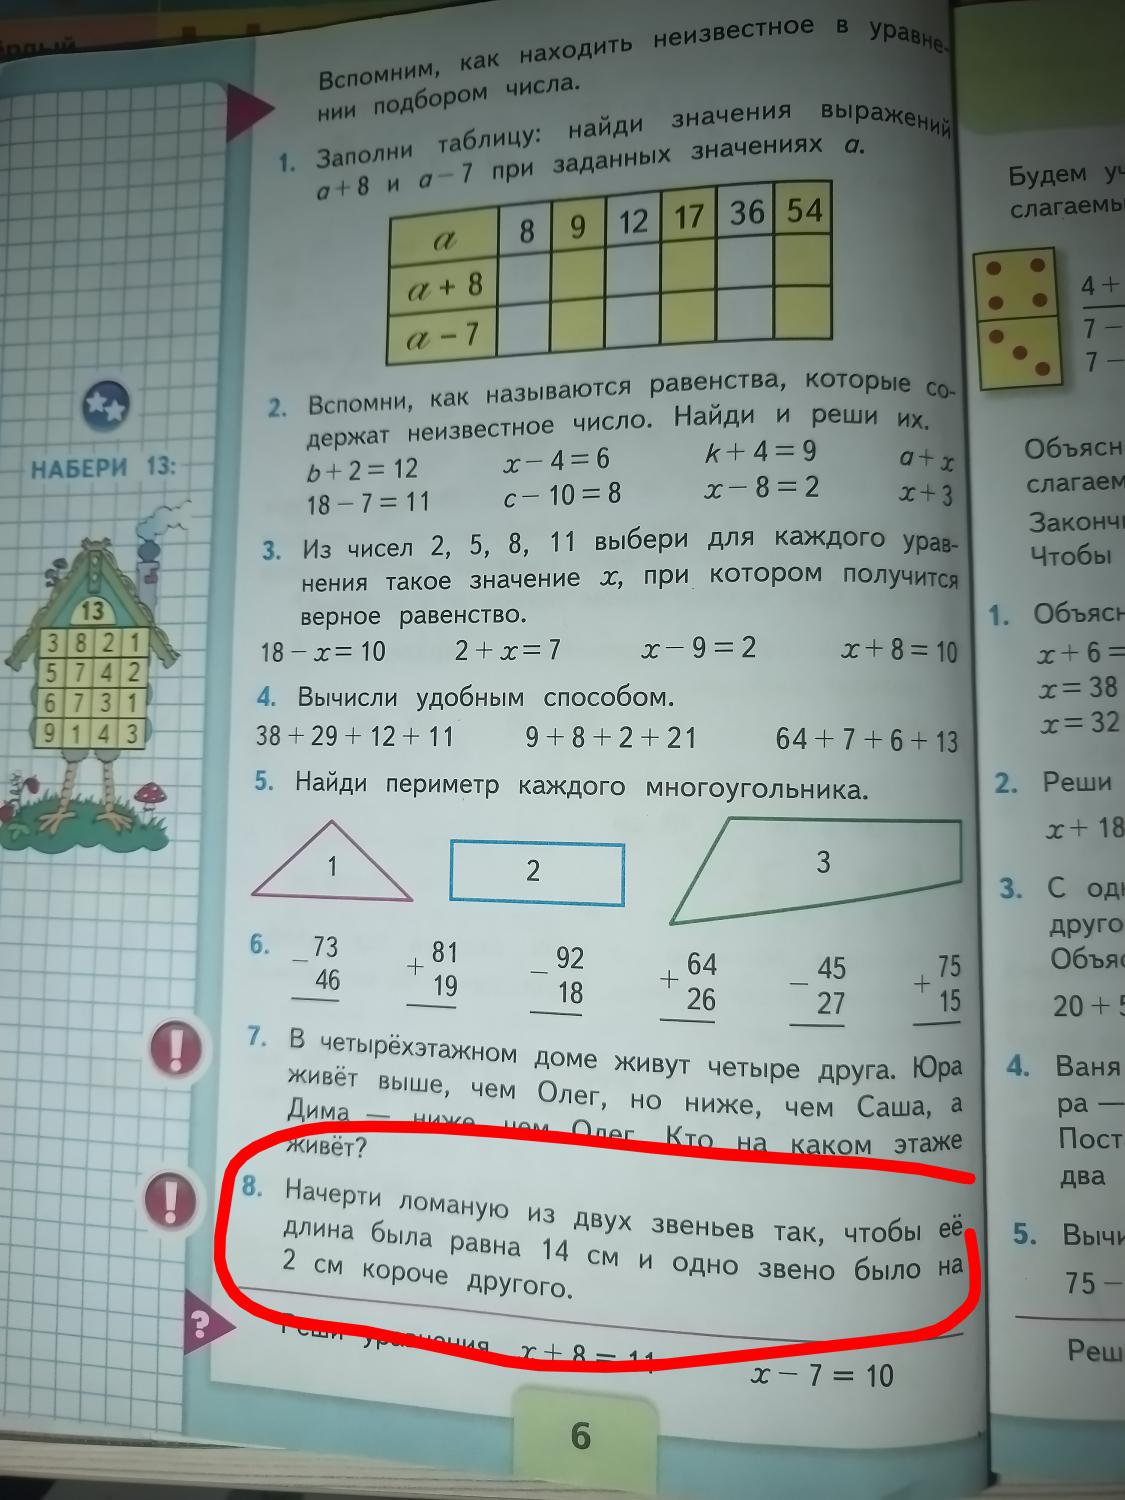 Вспомним, как находить неизвестное в уравне-
нии подбором числа.
1. Заполни таблицу: найди значения выражений
a + 8 и a − 7 при заданных значениях a.
a 8 9 12 17 36 54
a + 8
a − 7
2. Вспомни, как называются равенства, которые со-
держат неизвестное число. Найди и реши их.
b + 2 = 12 x − 4 = 6 k + 4 = 9 a + x
18 − 7 = 11 c − 10 = 8 x − 8 = 2 x + 3
3. Из чисел 2, 5, 8, 11 выбери для каждого урав-
нения такое значение x, при котором получится
верное равенство.
18 − x = 10 2 + x = 7 x − 9 = 2 x + 8 = 10
4. Вычисли удобным способом.
38 + 29 + 12 + 11 9 + 8 + 2 + 21 64 + 7 + 6 + 13
5. Найди периметр каждого многоугольника.
1 2 3
6. − 73 + 81 − 92 + 64 − 45 + 75
46 19 18 26 27 15
7. В четырёхэтажном доме живут четыре друга. Юра
живёт выше, чем Олег, но ниже, чем Саша, а
Дима — ниже, чем Олег. Кто на каком этаже
живёт?
8. Начерти ломаную из двух звеньев так, чтобы её
длина была равна 14 см и одно звено было на
2 см короче другого.
? Реши уравнения x + 8 = 11 x − 7 = 10
6
НАБЕРИ 13:
13
3 8 2 1
5 7 4 2
6 7 3 1
9 1 4 3
!
!
Будем
слагаемы
4 +
7 −
7 −
Объясн
слагаем
Законч
Чтобы
1. Объясн
x + 6 =
x = 38
x = 32
2. Реши
x + 18
3. С
друго
Объяс
20 +
4. Ваня
ра —
Пост
два
5. Вычи
75 −
Реш